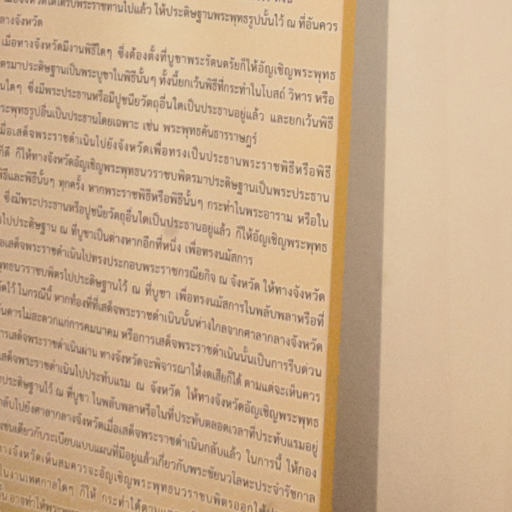 ให้ประดิษฐานพระพุทธรูปนั้นไว้ ณ ที่อันควร
ลางจังหวัด
เมื่อทางจังหวัดมีงานพิธีใดๆ ซึ่งต้องตั้งที่บูชาพระรัตนตรัยก็ให้อัญเชิญพระพุทธ
ตรมาประดิษฐานเป็นพระบูชาในพิธีนั้นๆ ทั้งนี้ยกเว้นพิธีที่กระทำในโบสถ์ วิหาร หรือ
นใดๆ ซึ่งมีพระประธานหรือมีปูชนียวัตถุอื่นใดเป็นประธานอยู่แล้ว และยกเว้นพิธี
ระพุทธรูปอื่นเป็นประธานโดยเฉพาะ เช่น พระพุทธคันธารราษฎร์
มื่อเสด็จพระราชดำเนินไปยังจังหวัดเพื่อทรงเป็นประธานพระราชพิธีหรือพิธี
ก็ดี ก็ให้ทางจังหวัดอัญเชิญพระพุทธนวราชบพิตรมาประดิษฐานเป็นพระประธาน
พิธีและพิธีนั้นๆ ทุกครั้ง หากพระราชพิธีหรือพิธีนั้นๆ กระทำในพระอาราม หรือใน
ซึ่งมีพระประธานหรือปูชนียวัตถุอื่นใดเป็นประธานอยู่แล้ว ก็ให้อัญเชิญพระพุทธ
ไปประดิษฐาน ณ ที่บูชาเป็นต่างหากอีกที่หนึ่ง เพื่อทรงนมัสการ
อเสด็จพระราชดำเนินไปทรงประกอบพระราชกรณียกิจ ณ จังหวัด ให้ทางจังหวัด
พุทธนวราชบพิตรไปประดิษฐานไว้ ณ ที่บูชา เพื่อทรงนมัสการในพลับพลาหรือที่
จัดไว้ ในกรณีนี้ หากท้องที่ที่เสด็จพระราชดำเนินนั้นห่างไกลจากศาลากลางจังหวัด
นดารไม่สะดวกแก่การคมนาคม หรือการเสด็จพระราชดำเนินนั้นเป็นการรีบด่วน
ารเสด็จพระราชดำเนินผ่าน ทางจังหวัดจะพิจารณาให้งดเสียก็ได้ ตามแต่จะเห็นควร
เสด็จพระราชดำเนินไปประทับแรม ณ จังหวัด ให้ทางจังหวัดอัญเชิญพระพุทธ
ประดิษฐานไว้ ณ ที่บูชา ในพลับพลาหรือในที่ประทับตลอดเวลาที่ประทับแรมอยู่
กลับไปยังศาลากลางจังหวัดเมื่อเสด็จพระราชดำเนินกลับแล้ว ในการนี้ ให้กอง
เช่นเดียวกับระเบียบแบบแผนที่มีอยู่แล้วเกี่ยวกับพระชัยนวโลหะประจำรัชกาล
างจังหวัดเห็นสมควรจะอัญเชิญพระพุทธนวราชบพิตรออกให้
ในงานเทศกาลใดๆ ก็ให้ กระทำได้ตาม